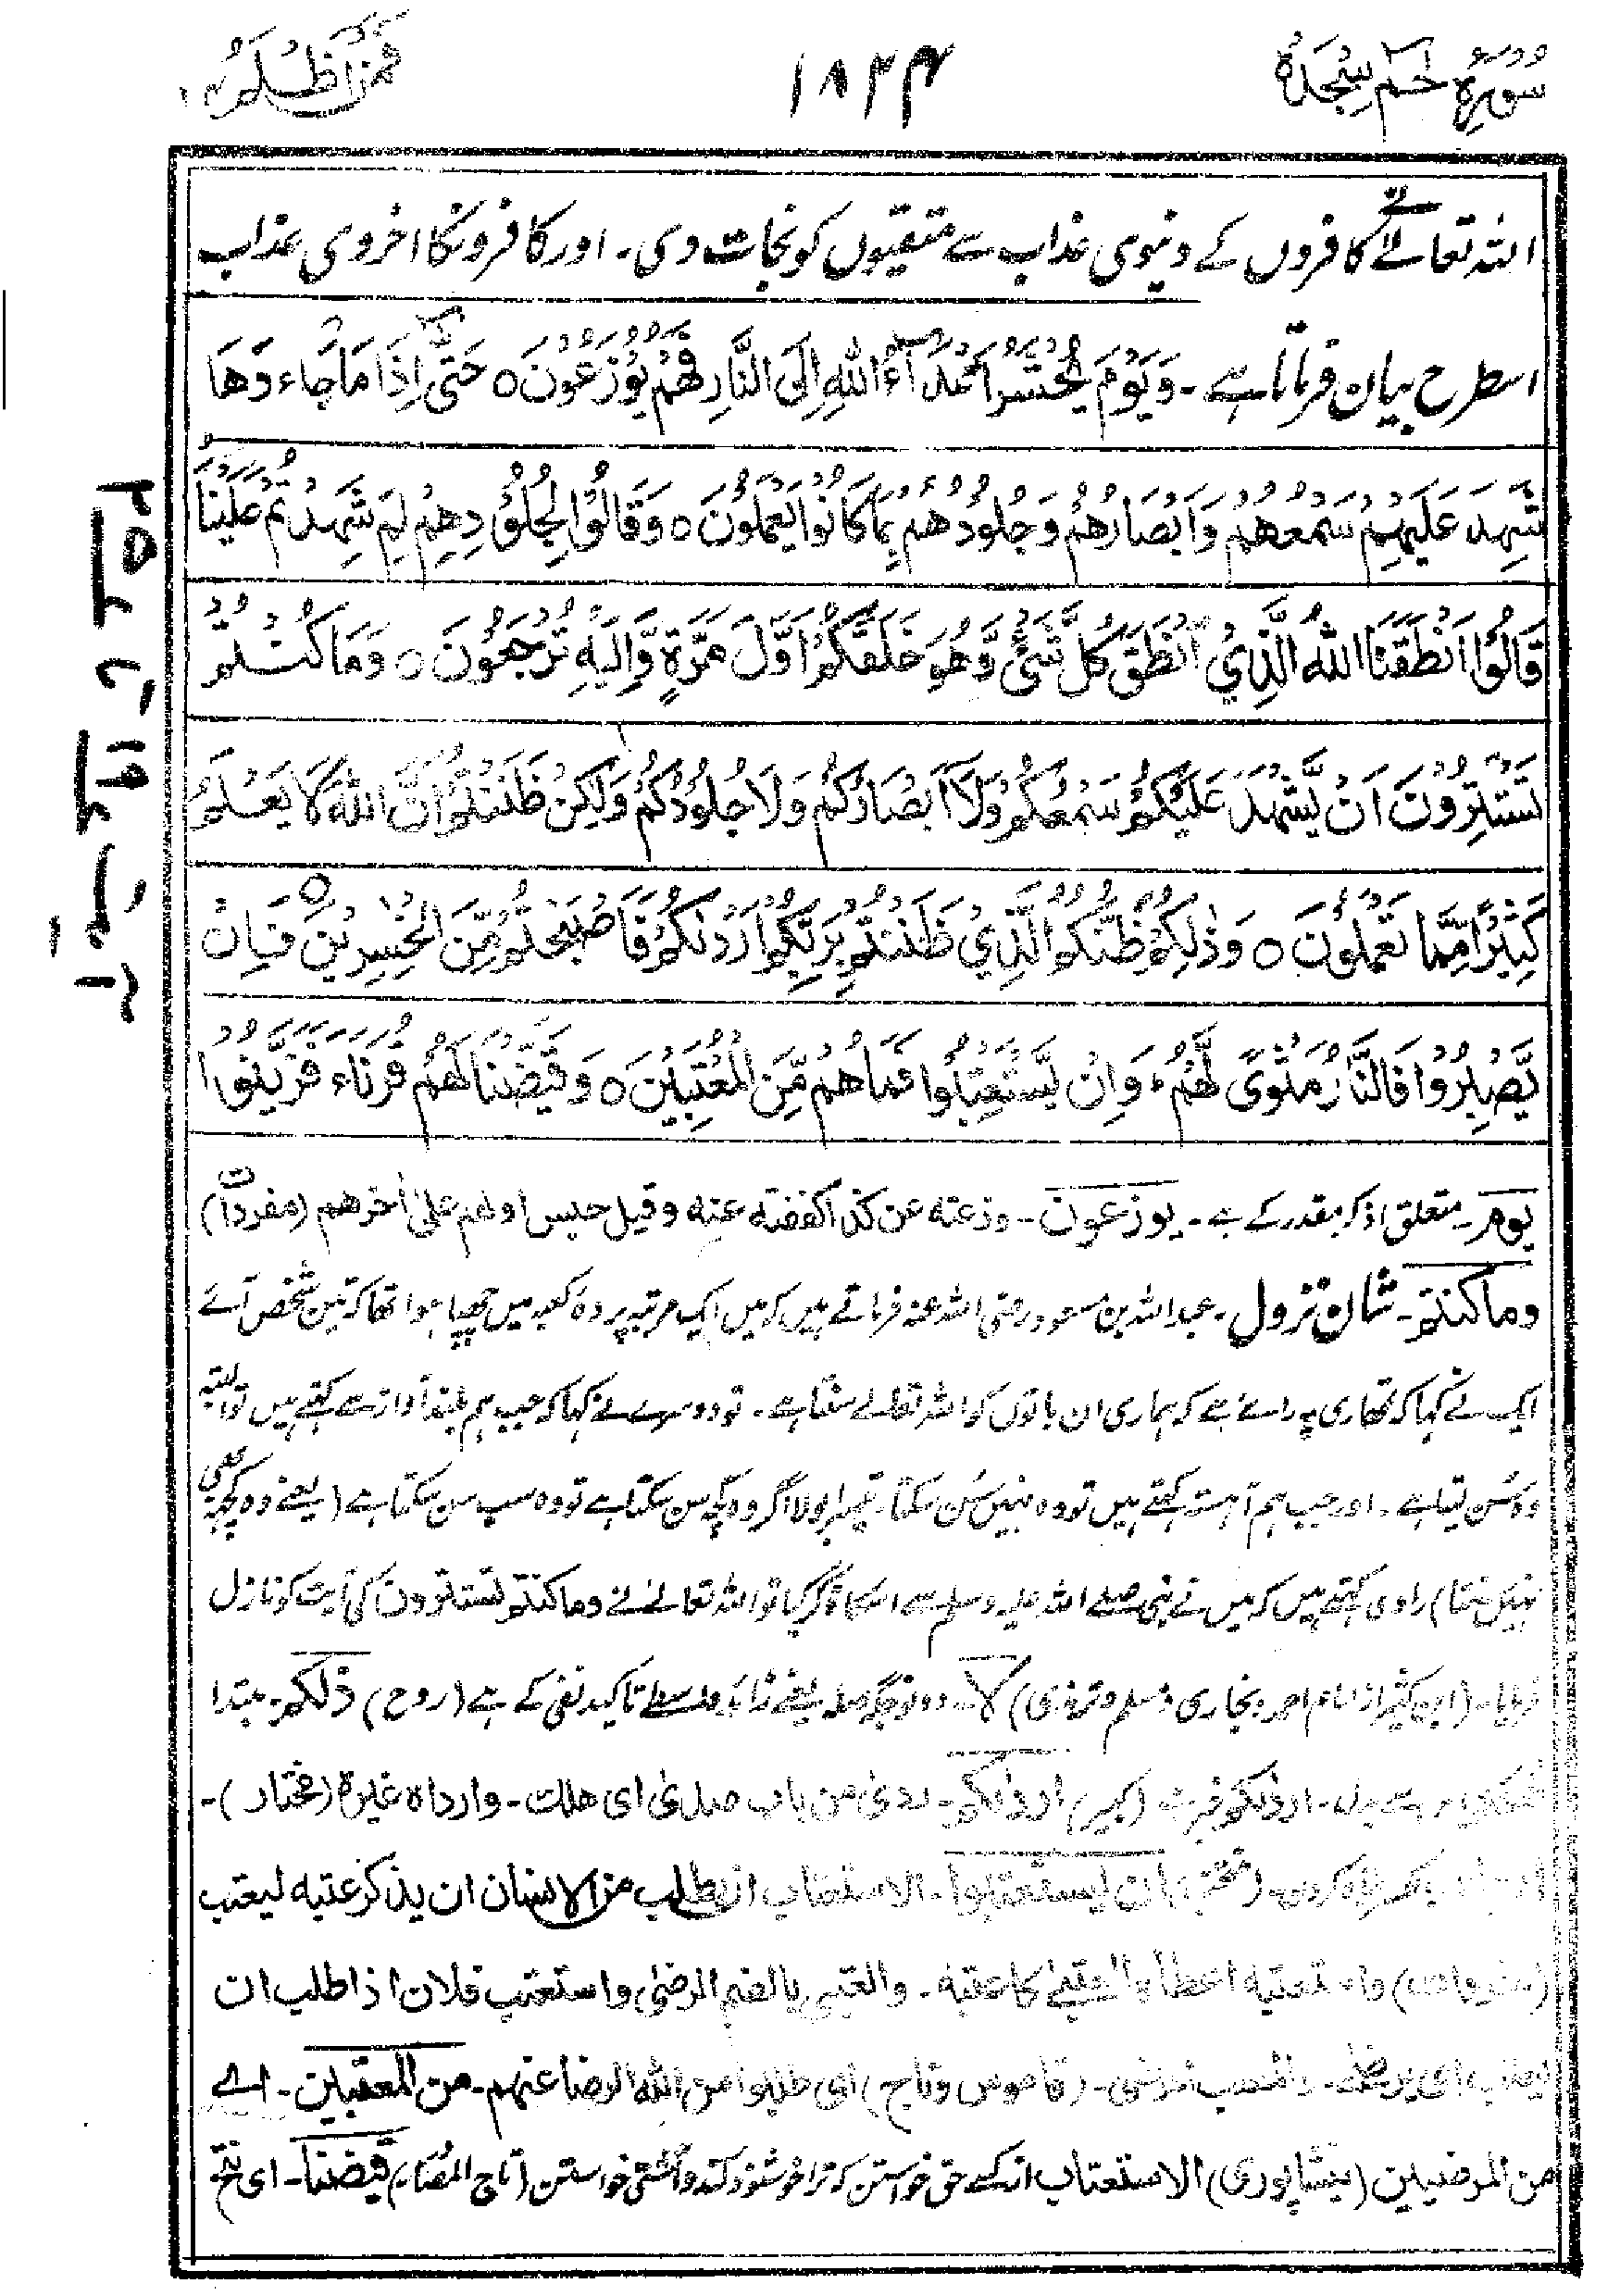 سورة حم سجدة
۱۸۳۴
فمن اظلم
اللہ تعالےٰ نے کافروں کے دنیوی عذاب سے متقیوں کو نجات دی۔ اور کافرونکا اخروی عذاب
اسطرح بیان فرماتا ہے۔ وَيَوْمَ يُحْشَرُ اَعْدَآءُ اللهِ اِلَى النَّارِ فَهُمْ يُوْزَعُوْنَ ○ حَتّٰى اِذَا مَا جَآءُوْهَا
شَهِدَ عَلَيْهِمْ سَمْعُهُمْ وَاَبْصَارُهُمْ وَجُلُوْدُهُمْ بِمَا كَانُوْا يَعْمَلُوْنَ ○ وَقَالُوْا لِجُلُوْدِهِمْ لِمَ شَهِدْتُّمْ عَلَيْنَا
قَالُوْا اَنْطَقَنَا اللهُ الَّذِيْ اَنْطَقَ كُلَّ شَيْءٍ وَّهُوَ خَلَقَكُمْ اَوَّلَ مَرَّةٍ وَّاِلَيْهِ تُرْجَعُوْنَ ○ وَمَا كُنْتُمْ
تَسْتَتِرُوْنَ اَنْ يَّشْهَدَ عَلَيْكُمْ سَمْعُكُمْ وَلَآ اَبْصَارُكُمْ وَلَا جُلُوْدُكُمْ وَلٰكِنْ ظَنَنْتُمْ اَنَّ اللهَ لَا يَعْلَمُ
كَثِيْرًا مِّمَّا تَعْمَلُوْنَ ○ وَذٰلِكُمْ ظَنُّكُمُ الَّذِيْ ظَنَنْتُمْ بِرَبِّكُمْ اَرْدٰىكُمْ فَاَصْبَحْتُمْ مِّنَ الْخٰسِرِيْنَ ○ فَاِنْ
يَّصْبِرُوْا فَالنَّارُ مَثْوًى لَّهُمْ ۚ وَاِنْ يَّسْتَعْتِبُوْا فَمَا هُمْ مِّنَ الْمُعْتَبِيْنَ ○ وَقَيَّضْنَا لَهُمْ قُرَنَآءَ فَزَيَّنُوْا
یوم۔ متعلق اذکر مقدر کے ہے۔ یوزعون۔ وزعتہ عن کذا کففتہ عنہ وقیل حبس اولھم علیٰ اٰخرھم (مفردات)
وما کنتم۔ شان نزول۔ عبد اللہ بن مسعود رضی اللہ عنہ فرماتے ہیں کہ میں ایک مرتبہ پردۂ کعبہ میں چھپا ہوا تھا کہ تین شخص آئے
ایک نے کہا کہ تمھاری یہ رائے ہے کہ ہماری ان باتوں کو اللہ تعالےٰ سنتا ہے۔ تو دوسرے نے کہا کہ جب ہم بلند آواز سے کہتے ہیں تو البتہ
وہ سُن لیتا ہے۔ اور جب ہم آہستہ کہتے ہیں تو وہ نہیں سُن سکتا۔ تیسرا بولا اگر وہ کچھ سن سکتا ہے تو وہ سب سن سکتا ہے (یعنے وہ کچھ بھی
نہیں سنتا) راوی کہتے ہیں کہ میں نے نبی صلے اللہ علیہ وسلم سے اسکا ذکر کیا تو اللہ تعالےٰ نے وما کنتم تستترون کی آیت کو نازل
فرمایا۔ (ابن کثیر از امام احمد و بخاری و مسلم و ترمذی) لا۔ دونوں جگہ صلہ یعنے زائد واسطے تاکید نفی کے ہے (روح) ذلکم۔ مبتدا
بدل۔ اردٰکم خبر (کبیر) اردٰکم۔ ردی من باب صدی ای ھلک۔ وارداہ غیرہ (مختار)۔
ان یستعتبوا۔ الاستعتاب ان یطلب من الانسان ان یذکر عتبہ لیعتب
(مفردات) واستعتبہ اعطاہ العتبیٰ کاعتبہ۔ والعتبی بالضم الرضیٰ واستعتب فلان اذا طلب ان
یعتب ای یرضی۔ (قاموس وتاج) ای طلبوا من اللہ الرضا عنہم۔ من المعتبین۔ اے
من المرضیین (نیشاپوری) الاستعتاب از کسے حق خواستن کہ ترا خوشنود کند و آشتی خواستن (تاج المصادر) قیضنا۔ ای نتح